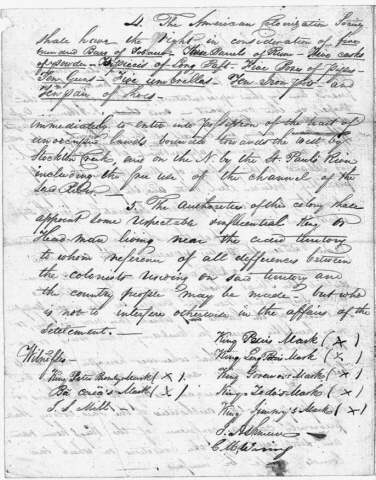 4. The American Colonization Society
shall have the right in consideration of five
hundred Bars of Tobacco - three barrels of Rum - five casks
of powder - pieces of Long Bafts - Five Boxes of Pipes -
Ten Guns - Five umbrellas - Ten Iron Pots and
Ten pair of Shoes -
immediately to enter into possession of the tract of
unoccupied lands bounded towards the West by
Stockton Creek, and on the N. by the St. Paul's River
including the free use of the channel of the
said River.
5. The authorities of the colony shall
appoint some respectable influential King or
Head man living near the ceded territory
to whom reference of all differences between
the colonists residing on said territory and
the country people may be made - but who
is not to interfere otherwise in the affairs of the
Settlement. -
King Mark (X)
Witnesses King Mark (X)
King Peter Mark (X) King Mark (X)
Mark (X) King Mark (X)
King Jimmy's Mark (X)
J. Ashmun
C. M. Waring